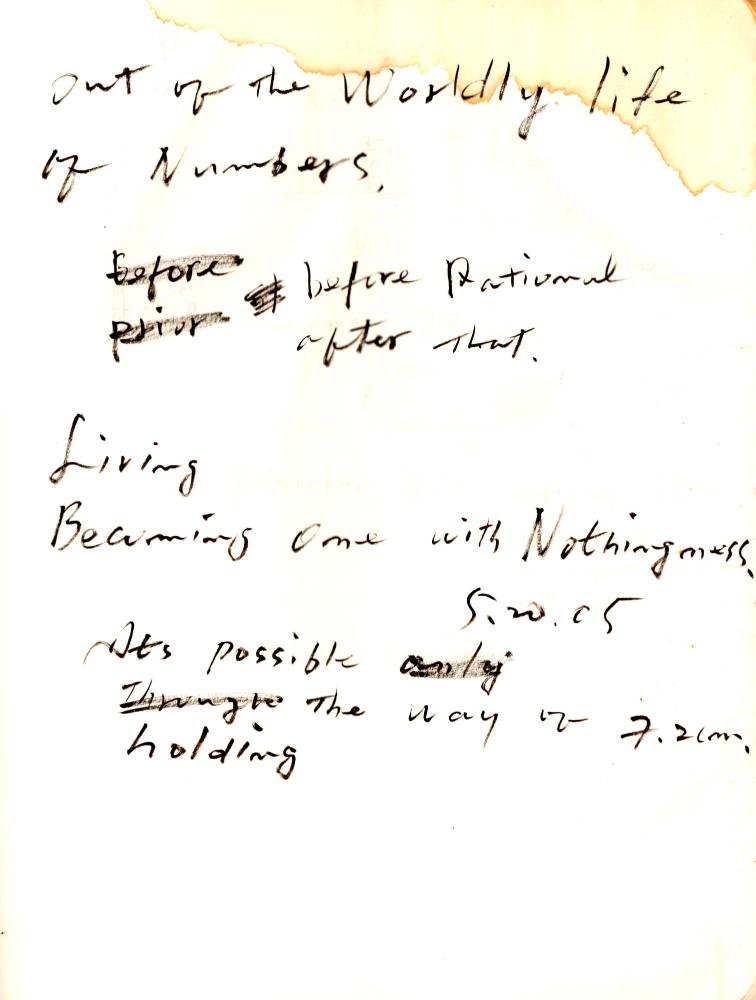 out of the Worldly life
of Numbers.
before
prior before Rational
after that.
Living
Becoming one with Nothingness.
5.20.05
Its possible only
Through the way of 7.2cm.
holding